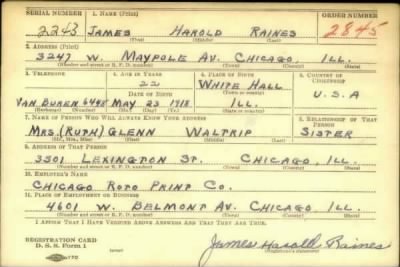 SERIAL NUMBER 1. NAME (Print) ORDER NUMBER
2243 JAMES HAROLD RAINES 2845
(First) (Middle) (Last)
2. ADDRESS (Print)
3247 W. MAYPOLE AV. CHICAGO, ILL.
(Number and street or R. F. D. number) (Town) (County) (State)
3. TELEPHONE 4. AGE IN YEARS 5. PLACE OF BIRTH 6. COUNTRY OF CITIZENSHIP
22 WHITE HALL
DATE OF BIRTH (Town or county) U.S.A
VAN BUREN 6488 MAY 23 1918 ILL.
(Exchange) (Number) (Mo.) (Day) (Yr.) (State or country)
7. NAME OF PERSON WHO WILL ALWAYS KNOW YOUR ADDRESS 8. RELATIONSHIP OF THAT PERSON
MRS. (RUTH) GLENN WALTRIP SISTER
(Mr., Mrs., Miss) (First) (Middle) (Last)
9. ADDRESS OF THAT PERSON
3501 LEXINGTON ST. CHICAGO, ILL.
(Number and street or R. F. D. number) (Town) (County) (State)
10. EMPLOYER'S NAME
CHICAGO ROTO PRINT CO.
11. PLACE OF EMPLOYMENT OR BUSINESS
4601 W. BELMONT AV. CHICAGO, ILL.
(Number and street or R. F. D. number) (Town) (County) (State)
I AFFIRM THAT I HAVE VERIFIED ABOVE ANSWERS AND THAT THEY ARE TRUE.
REGISTRATION CARD
D. S. S. Form 1 James Harold Raines
(Registrant's signature)